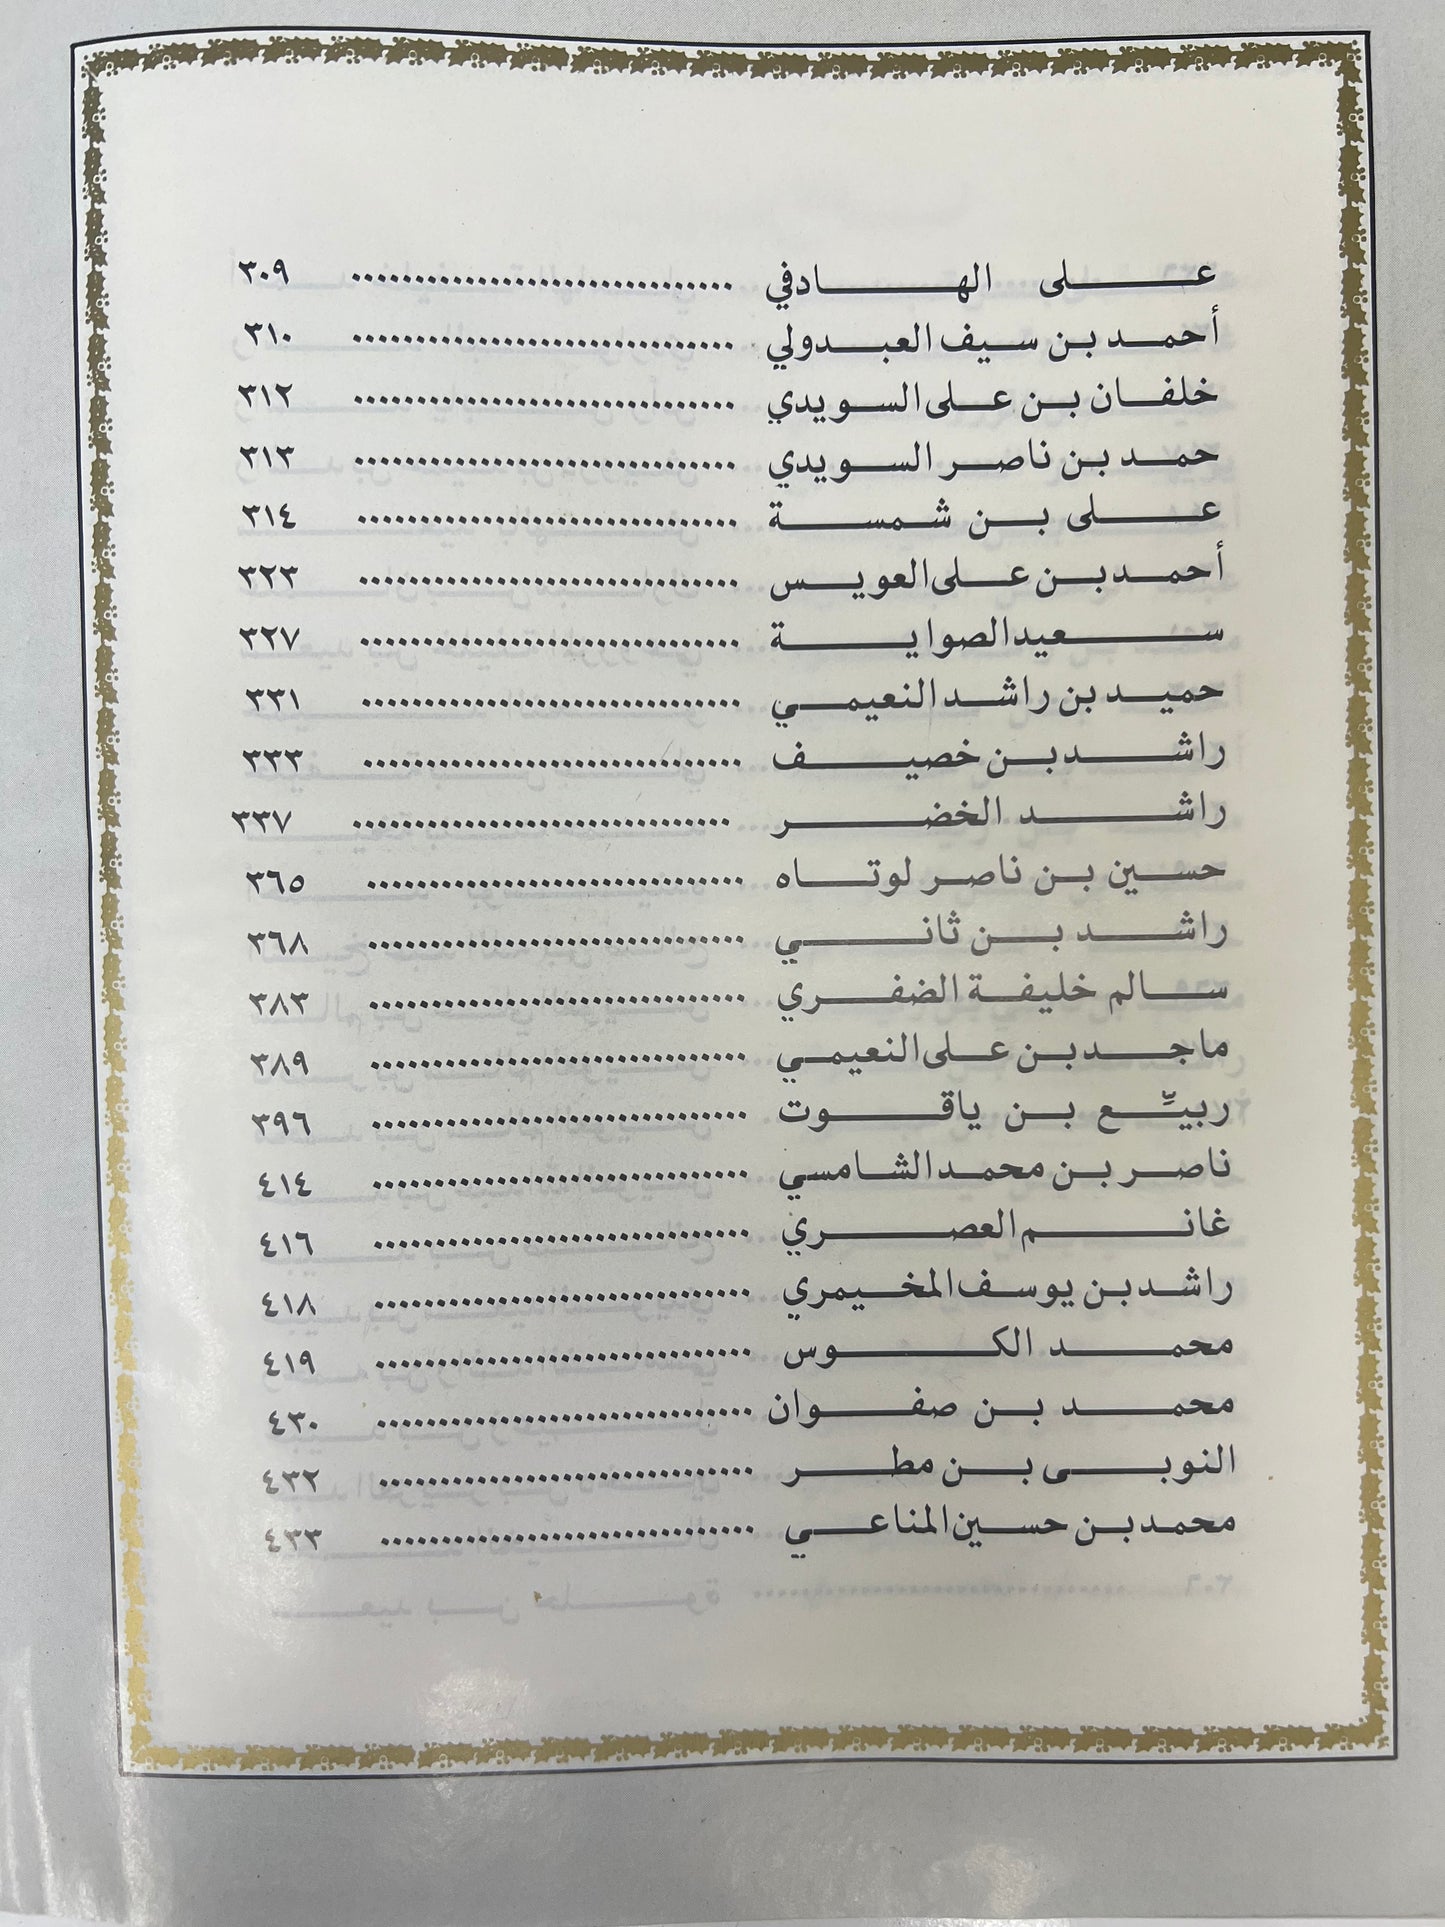 على الهادفي ................................ ٣٠٩
أحمد بن سيف العبدولي ................................ ٣١٠
خلفان بن على السويدي ................................ ٣١٢
حمد بن ناصر السويدي ................................ ٣١٣
على بن شمسة ................................ ٣١٤
أحمد بن على العويس ................................ ٣٢٣
سعيد الصواية ................................ ٣٢٧
حميد بن راشد النعيمي ................................ ٣٣١
راشد بن خصيف ................................ ٣٣٣
راشد الخضر ................................ ٣٣٧
حسين بن ناصر لوتاه ................................ ٣٦٥
راشد بن ثاني ................................ ٣٦٨
سالم خليفة الضفري ................................ ٣٨٣
ماجد بن على النعيمي ................................ ٣٨٩
ربيّع بن ياقوت ................................ ٣٩٦
ناصر بن محمد الشامسي ................................ ٤١٤
غانم العصري ................................ ٤١٦
راشد بن يوسف المخيمري ................................ ٤١٨
محمد الكوس ................................ ٤١٩
محمد بن صفوان ................................ ٤٣٠
النوبى بن مطر ................................ ٤٣٢
محمد بن حسين المناعي ................................ ٤٣٣